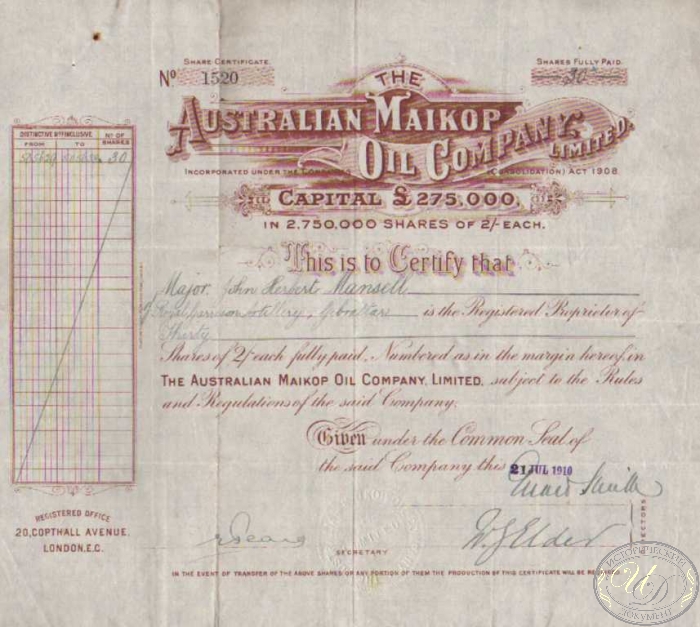 SHARE CERTIFICATE.
SHARES FULLY PAID.
No 1520
30
THE
AUSTRALIAN MAIKOP
OIL COMPANY, LIMITED.
INCORPORATED UNDER THE COMPANIES (CONSOLIDATION) ACT 1908
CAPITAL £275,000,
IN 2,750,000 SHARES OF 2/- EACH.
DISTINCTIVE Nos INCLUSIVE
No OF SHARES
FROM
TO
30
This is to Certify that
Major John Herbert Mansell
of Royal Garrison Artillery, Gibraltar is the Registered Proprietor of
Thirty
Shares of 2/- each fully paid, Numbered as in the margin hereof, in
THE AUSTRALIAN MAIKOP OIL COMPANY, LIMITED, subject to the Rules
and Regulations of the said Company.
Given under the Common Seal of
the said Company this 21 JUL 1910
Smith
W. J. Elder
DIRECTORS
SECRETARY
REGISTERED OFFICE
20, COPTHALL AVENUE,
LONDON, E.C.
IN THE EVENT OF TRANSFER OF THE ABOVE SHARES OR ANY PORTION OF THEM THE PRODUCTION OF THIS CERTIFICATE WILL BE REQUIRED
ИСТОРИЧЕСКИЙ
ИД
ДОКУМЕНТ